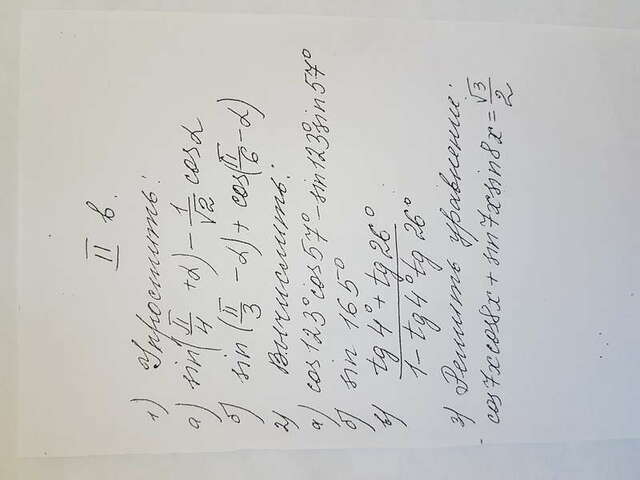 II в.
1) Упростить:
а) sin(π/4 + α) - 1/√2 cos α
б) sin (π/3 - α) + cos(π/6 - α)
2) Вычислить:
а) cos 123° cos 57° - sin 123° sin 57°
б) sin 165°
в) (tg 4° + tg 26°)/(1 - tg 4° tg 26°)
3) Решить уравнений:
cos 7x cos 8x + sin 7x sin 8x = √3/2